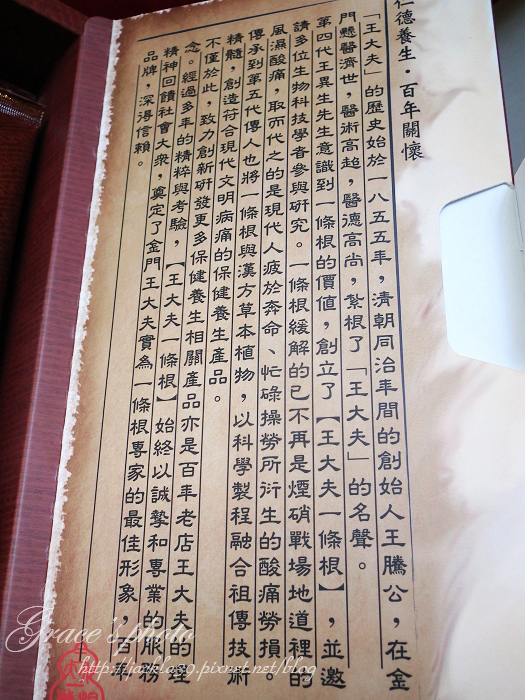 仁德養生．百年關懷
「王大夫」的歷史始於一八五五年，清朝同治年間的創始人王騰公，在金
門懸醫濟世，醫術高超，醫德高尚，紮根了「王大夫」的名聲。
第四代王異生先生意識到一條根的價值，創立了【王大夫一條根】，並邀
請多位生物科技學者參與研究。一條根緩解的已不再是煙硝戰場地道裡的
風濕酸痛，取而代之的是現代人疲於奔命、忙碌操勞所衍生的酸痛勞損。
傳承到第五代傳人也將一條根與漢方草本植物，以科學製程融合祖傳技術
精髓，創造符合現代文明病痛的保健養生產品。
不僅於此，致力創新研發更多保健養生相關產品亦是百年老店王大夫的理
念。經過多年的精粹與考驗，【王大夫一條根】始終以誠摯和專業的服務
精神回饋社會大眾，奠定了金門王大夫實為一條根專家的最佳形象
品牌，深得信賴。
Grace's photo
http://jackla39.pixnet.net/blog